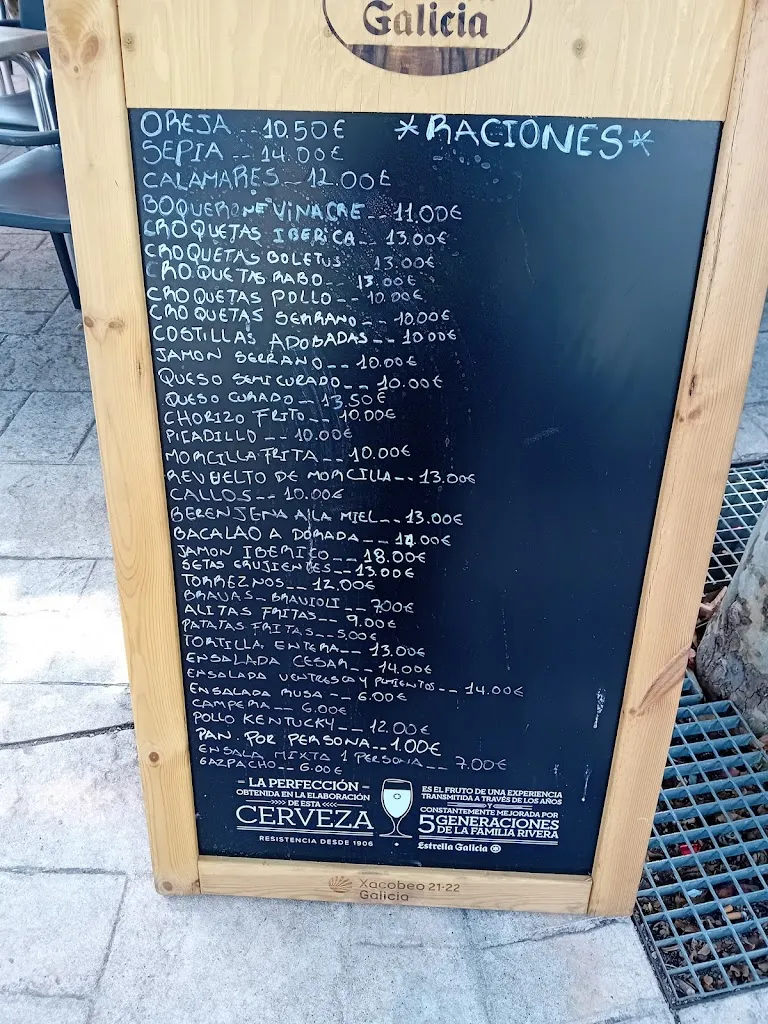 Galicia
*RACIONES*
OREJA -- 10.50€
SEPIA -- 14.00€
CALAMARES - 12.00€
BOQUERONE VINAGRE -- 11.00€
CROQUETAS IBERICA -- 13.00€
CROQUETAS BOLETUS 13.00€
CROQUETAS RABO - 13.00€
CROQUETAS POLLO -- 10.00€
CROQUETAS SERRANO - 10.00€
COSTILLAS ADOBADAS -- 10.00€
JAMON SERRANO -- 10.00€
QUESO SEMICURADO -- 10.00€
QUESO CURADO - 13.50€
CHORIZO FRITO -- 10.00€
PICADILLO -- 10.00€
MORCILLA FRITA -- 10.00€
REVUELTO DE MORCILLA -- 13.00€
CALLOS -- 10.00€
BERENJENA A LA MIEL -- 13.00€
BACALAO A DORADA -- 14.00€
JAMON IBERICO -- 18.00€
SETAS CRUJIENTES -- 13.00€
TORREZNOS -- 12.00€
BRAVAS - BRAVIOLI -- 7.00€
ALITAS FRITAS -- 9.00€
PATATAS FRITAS -- 5.00€
TORTILLA ENTERA -- 13.00€
ENSALADA CESAR -- 14.00€
ENSALADA VENTRESCA Y PIMIENTOS -- 14.00€
ENSALADA RUSA -- 6.00€
CAMPERA -- 6.00€
POLLO KENTUCKY -- 12.00€
PAN. POR PERSONA -- 1.00€
ENSALA MIXTA 1 PERSONA -- 7.00€
GAZPACHO -- 6.00€
- LA PERFECCIÓN -
OBTENIDA EN LA ELABORACIÓN
DE ESTA
CERVEZA
RESISTENCIA DESDE 1906
ES EL FRUTO DE UNA EXPERIENCIA
TRANSMITIDA A TRAVÉS DE LOS AÑOS
Y
CONSTANTEMENTE MEJORADA POR
5 GENERACIONES
DE LA FAMILIA RIVERA
Estrella Galicia
Xacobeo 21·22
Galicia